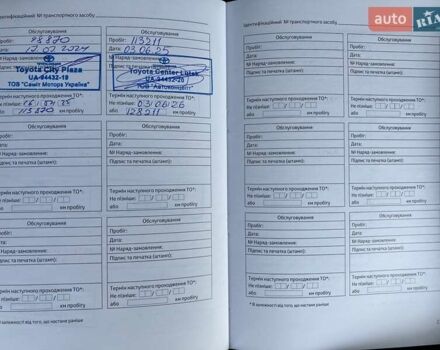 Ідентифікаційний № транспортного засобу
Обслуговування
Пробіг: 98870
Дата: 12.02.2024
Toyota City Plaza
UA-94432-19
ТОВ "Саміт Моторз Україна"
Термін наступного проходження ТО*:
або 113870 км пробігу
Обслуговування
Пробіг: 113211
Дата: 03.06.25
№ Наряд-замовлення:
Toyota Center Lutsk
ТОВ "Автоконцепт"
Термін наступного проходження ТО*:
Не пізніше: 03/06/26
або 128211 км пробігу
Обслуговування
Пробіг:
Дата:
№ Наряд-замовлення:
Підпис та печатка (штамп):
Термін наступного проходження ТО*:
Не пізніше:
або км пробігу
Обслуговування
Пробіг:
Дата:
№ Наряд-замовлення:
Підпис та печатка (штамп):
Термін наступного проходження ТО*:
Не пізніше:
або км пробігу
Обслуговування
Пробіг:
Дата:
№ Наряд-замовлення:
Підпис та печатка (штамп):
Термін наступного проходження ТО*:
Не пізніше:
або км пробігу
Обслуговування
Пробіг:
Дата:
№ Наряд-замовлення:
Підпис та печатка (штамп):
Термін наступного проходження ТО*:
Не пізніше:
або км пробігу
залежності від того, що настане раніше
Ідентифікаційний № транспортного засобу
auto RIA
Обслуговування
Пробіг:
Дата:
№ Наряд-замовлення:
Підпис та печатка (штамп):
Термін наступного проходження ТО*:
Не пізніше:
або км пробігу
Обслуговування
Пробіг:
Дата:
№ Наряд-замовлення:
Підпис та печатка (штамп):
Термін наступного проходження ТО*:
Не пізніше:
або
Обслуговування
Пробіг:
Дата:
№ Наряд-замовлення:
Підпис та печатка (штамп):
Термін наступного проходження ТО*:
Не пізніше:
або км пробігу
Обслуговування
Пробіг:
Дата:
№ Наряд-замовлення:
Підпис та печатка (штамп):
Термін наступного проходження ТО*:
Не пізніше:
або
Обслуговування
Пробіг:
Дата:
№ Наряд-замовлення:
Підпис та печатка (штамп):
Термін наступного проходження ТО*:
Не пізніше:
або км пробігу
Обслуговування
Пробіг:
Дата:
№ Наряд-замовлення:
Підпис та печатка (штамп):
Термін наступного проходження ТО*:
Не пізніше:
або
* В залежності від того, що настане раніше